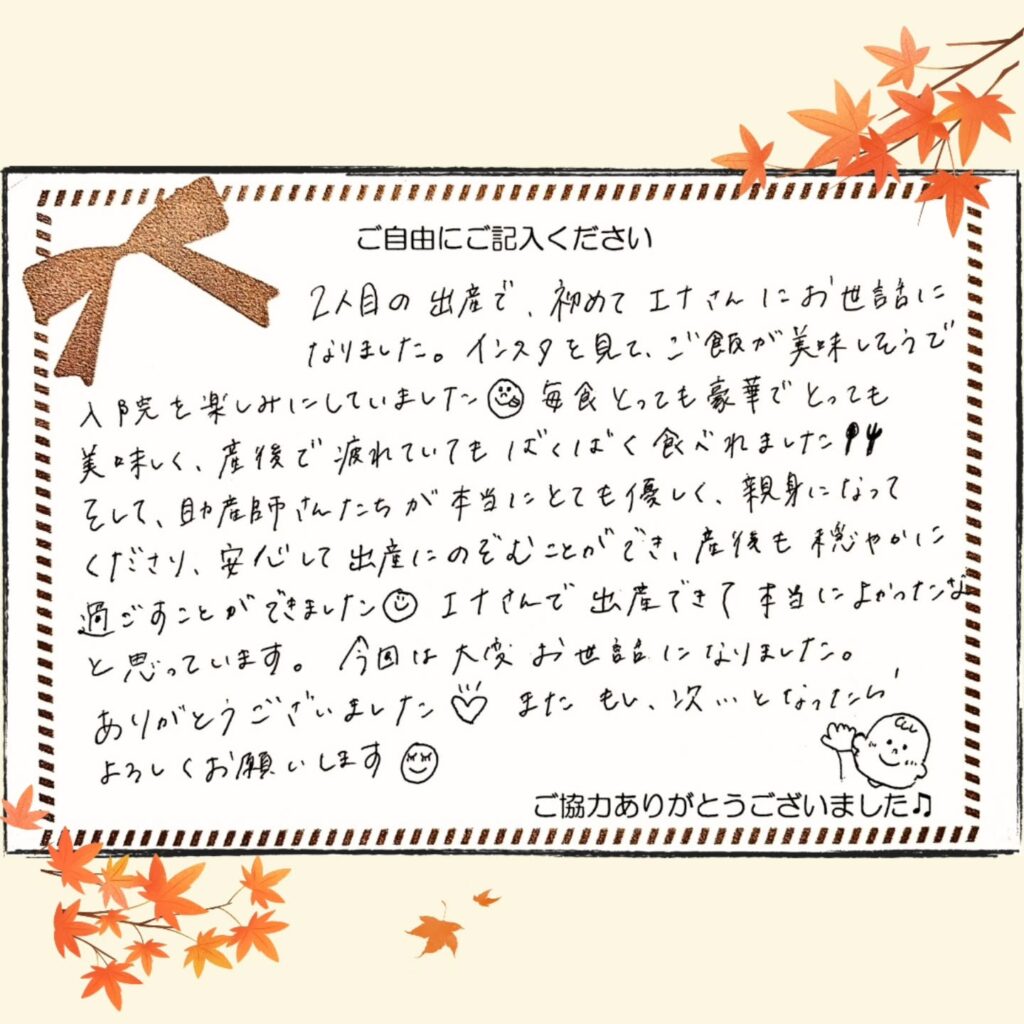 ご自由にご記入ください
2人目の出産で、初めてエナさんにお世話に
なりました。インスタを見て、ご飯が美味しそうで
入院を楽しみにしていました 毎食とっても豪華でとっても
美味しく、産後で疲れていてもばくばく食べれました
そして、助産師さんたちが本当にとても優しく、親身になって
くださり、安心して出産にのぞむことができ、産後も穏やかに
過ごすことができました エナさんで出産できて本当によかったな
と思っています。今回は大変お世話になりました。
ありがとうございました♡ また もし、次…となったら
よろしくお願いします
ご協力ありがとうございました♫